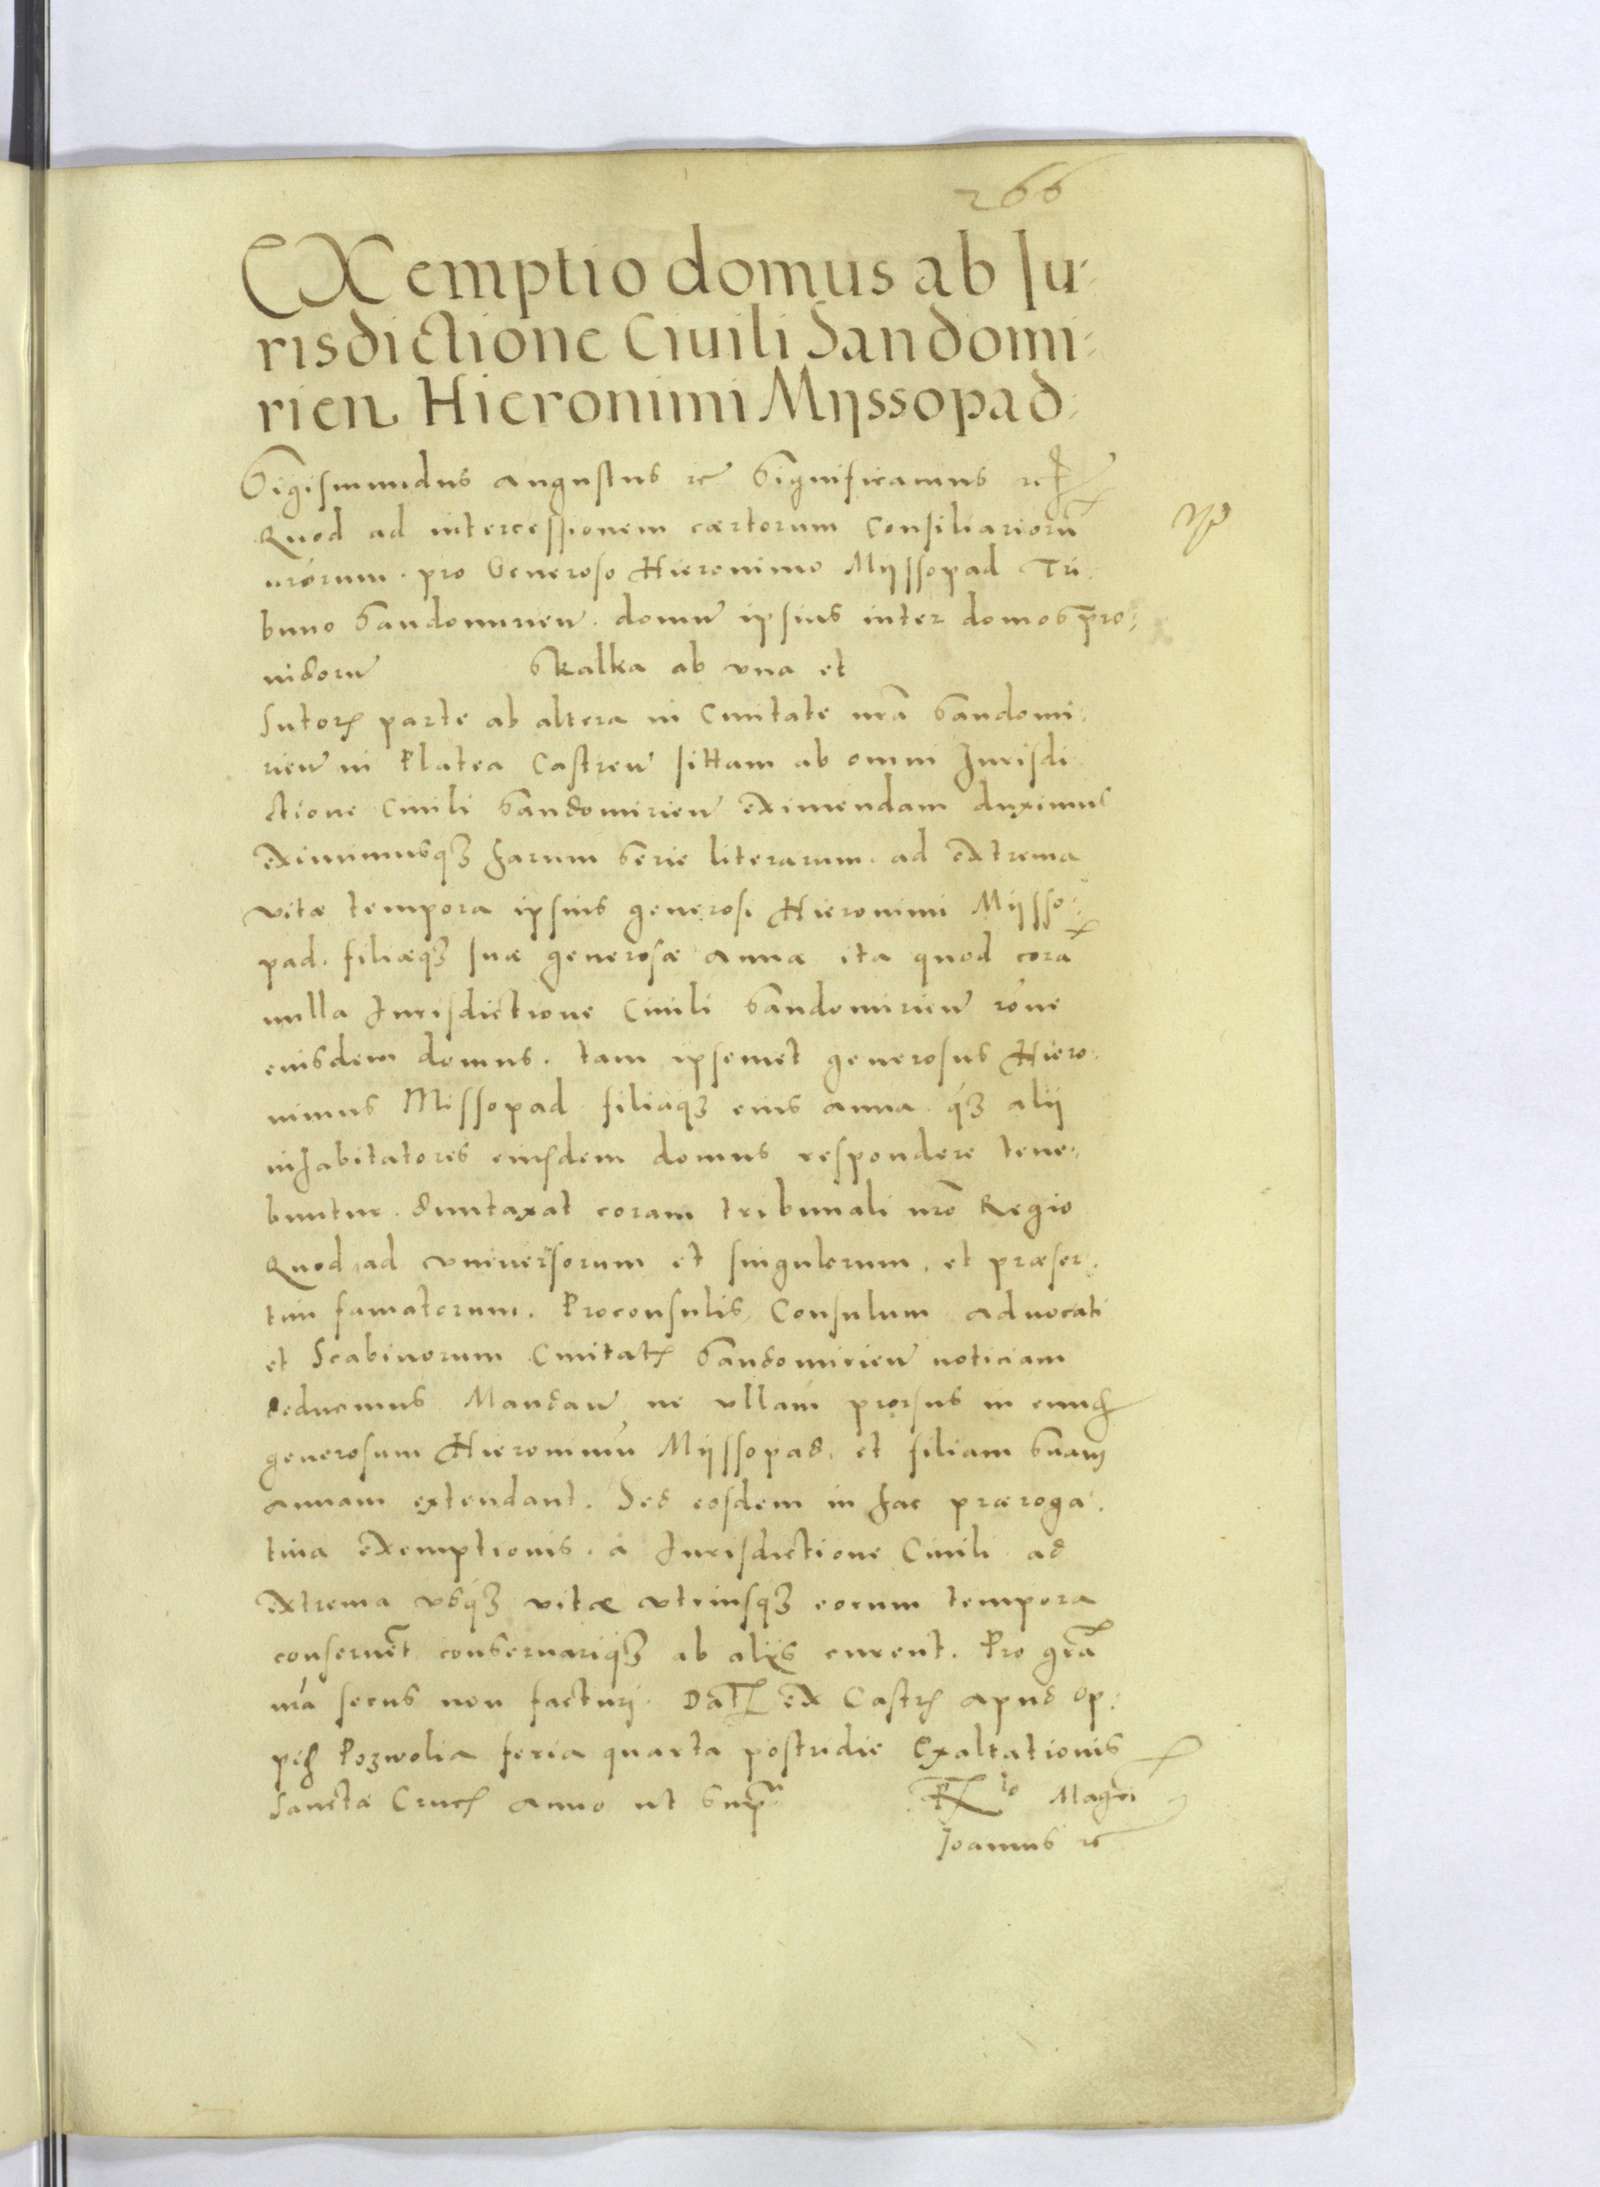 266
EXemptio domus ab Iu-
risdictione Ciuili Sandomi-
rien Hieronimi Mijssopad.
Sigismundus Augustus etc Significamus etc
Quod ad intercessionem certorum Consiliariorũ
nr̃orum. pro Generoso Hieronimo Mijssopad Tri-
buno Sandomirien. domũ ipsius inter domos pro-
uidorũ Skalka ab vna et
Sutoris parte ab altera in Ciuitate nr̃a Sandomi-
rien in Platea Castren sittam ab omni Jurisdi
ctione Ciuili Sandomirien eximendam duximus
eximimusqꝫ harum serie literarum. ad extrema
vitæ tempora ipsius generosi Hieronimi Mijsso-
pad. filiæqꝫ suæ generosæ Annæ ita quod corã
nulla Jurisdictione Ciuili Sandomirien rõne
euisdem domus. tam ipsemet generosus Hiero-
nimus Missopad filiaqꝫ eius Anna qꝫ alij
inhabitatores eiusdem domus respondere tene-
buntur. duntaxat coram tribunali nr̃o Regio
Quod ad vniuersorum et singulorum, et præser-
tim famatorum. Proconsulis, Consulum Aduocati
et Scabinorum Ciuitatis Sandomirien noticiam
deducimus Mandan ne vllam prorsus in eund
generosum Hieronimũ Mijssopad. et filiam Suam
Annam extendant. Sed eosdem in hac præroga-
tiua exemptionis. à Jurisdictione Ciuili ad
extrema vsqꝫ vitæ vtriusqꝫ eorum tempora
conseruẽt conseruariqꝫ ab alijs curent. Pro gr̃a
nr̃a secus non facturi. Dat ex Castris apud Op-
pid Pozwolia feria quarta postridie Exaltationis
Sanctæ Crucis Anno ut supra Rlõ Magci
Ioannis etc